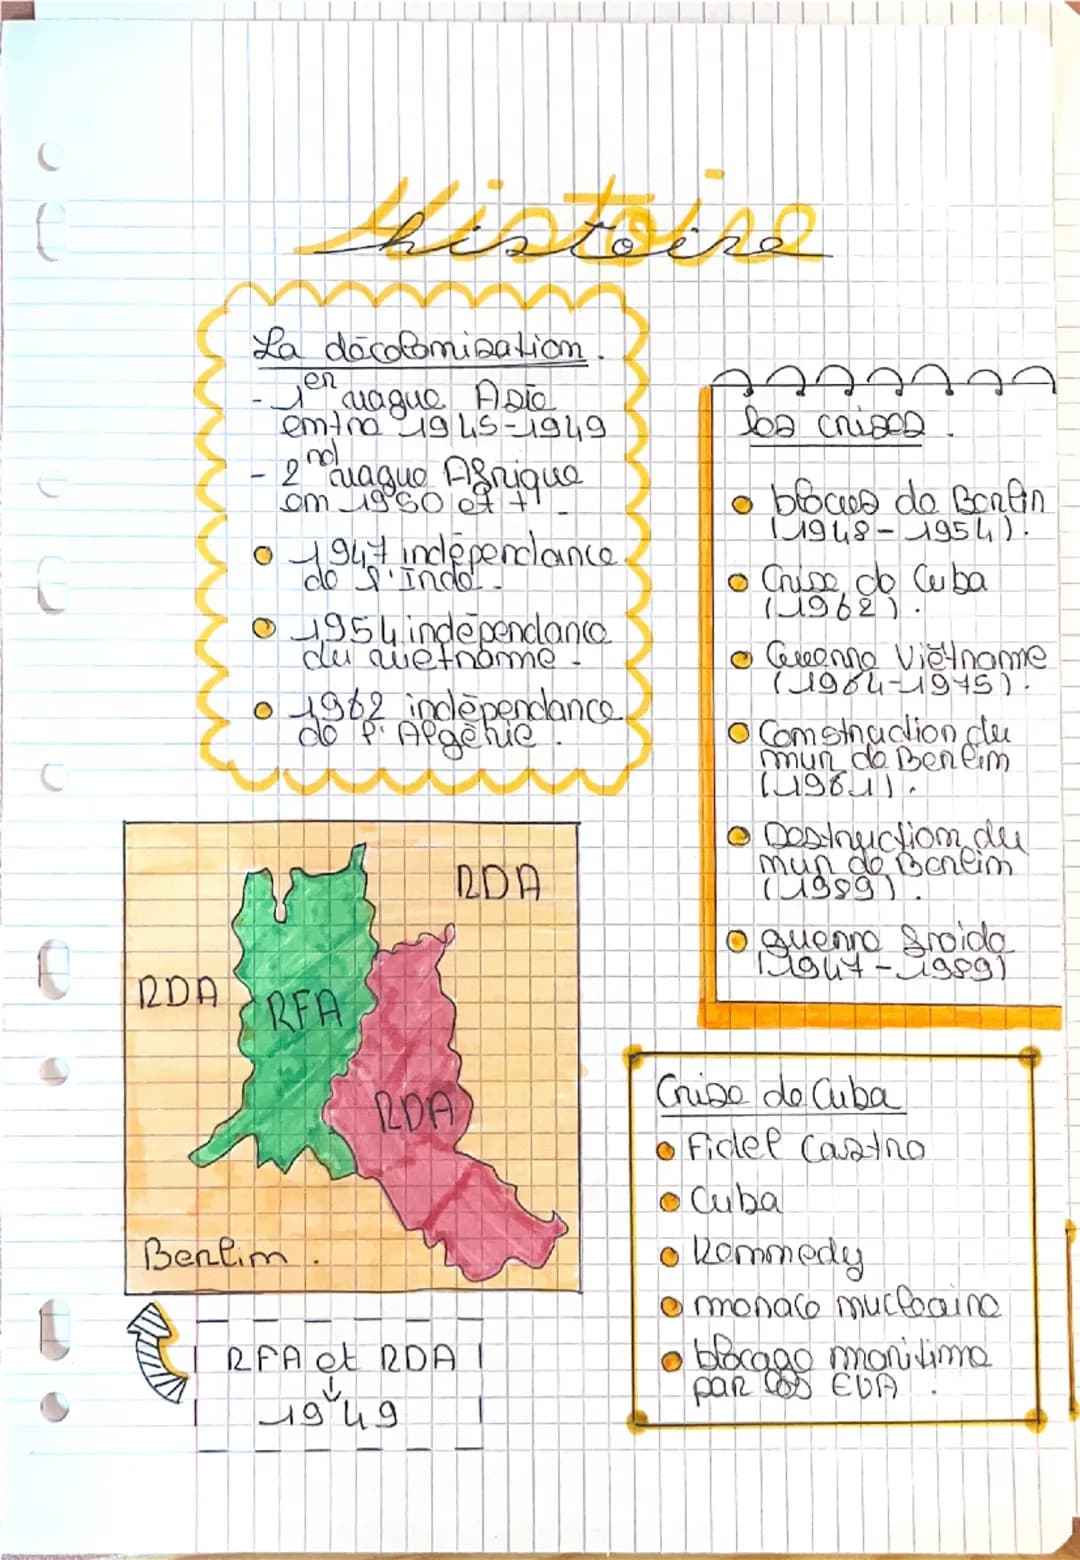 Histoire
histoire
La décolonisation.
- 1er vague Asie
entre 1945-1949
- 2nd vague Afrique
en 1950 et +
1947 indépendance
de l'Inde.
1954 indépendance
du vietnanme.
1962 indépendance
de l'Algérie.
les crises.
blocus de Berlin
(1948-1954).
Crise de Cuba
(1962).
Guerre Viêtname
(1964-1975).
Construction du
mur de Berlin
(1961).
Destruction du
mur de Berlin
(1989).
guerre froide
(1947-1989)
RDA
RDA
RFA
RDA
Berlin.
RFA et RDA
↓
1949
Crise de Cuba
Fidel Castro
Cuba
Kennedy
menace nucléaire
blocage maritime
par les EUA.